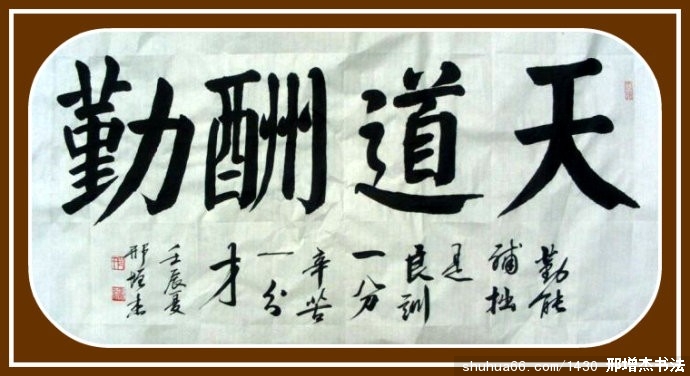 天道酬勤
勤能
補拙
是
良訓
一分
辛苦
一分
才
壬辰夏
邢增杰
shuhua66.com/1430 邢增杰书法